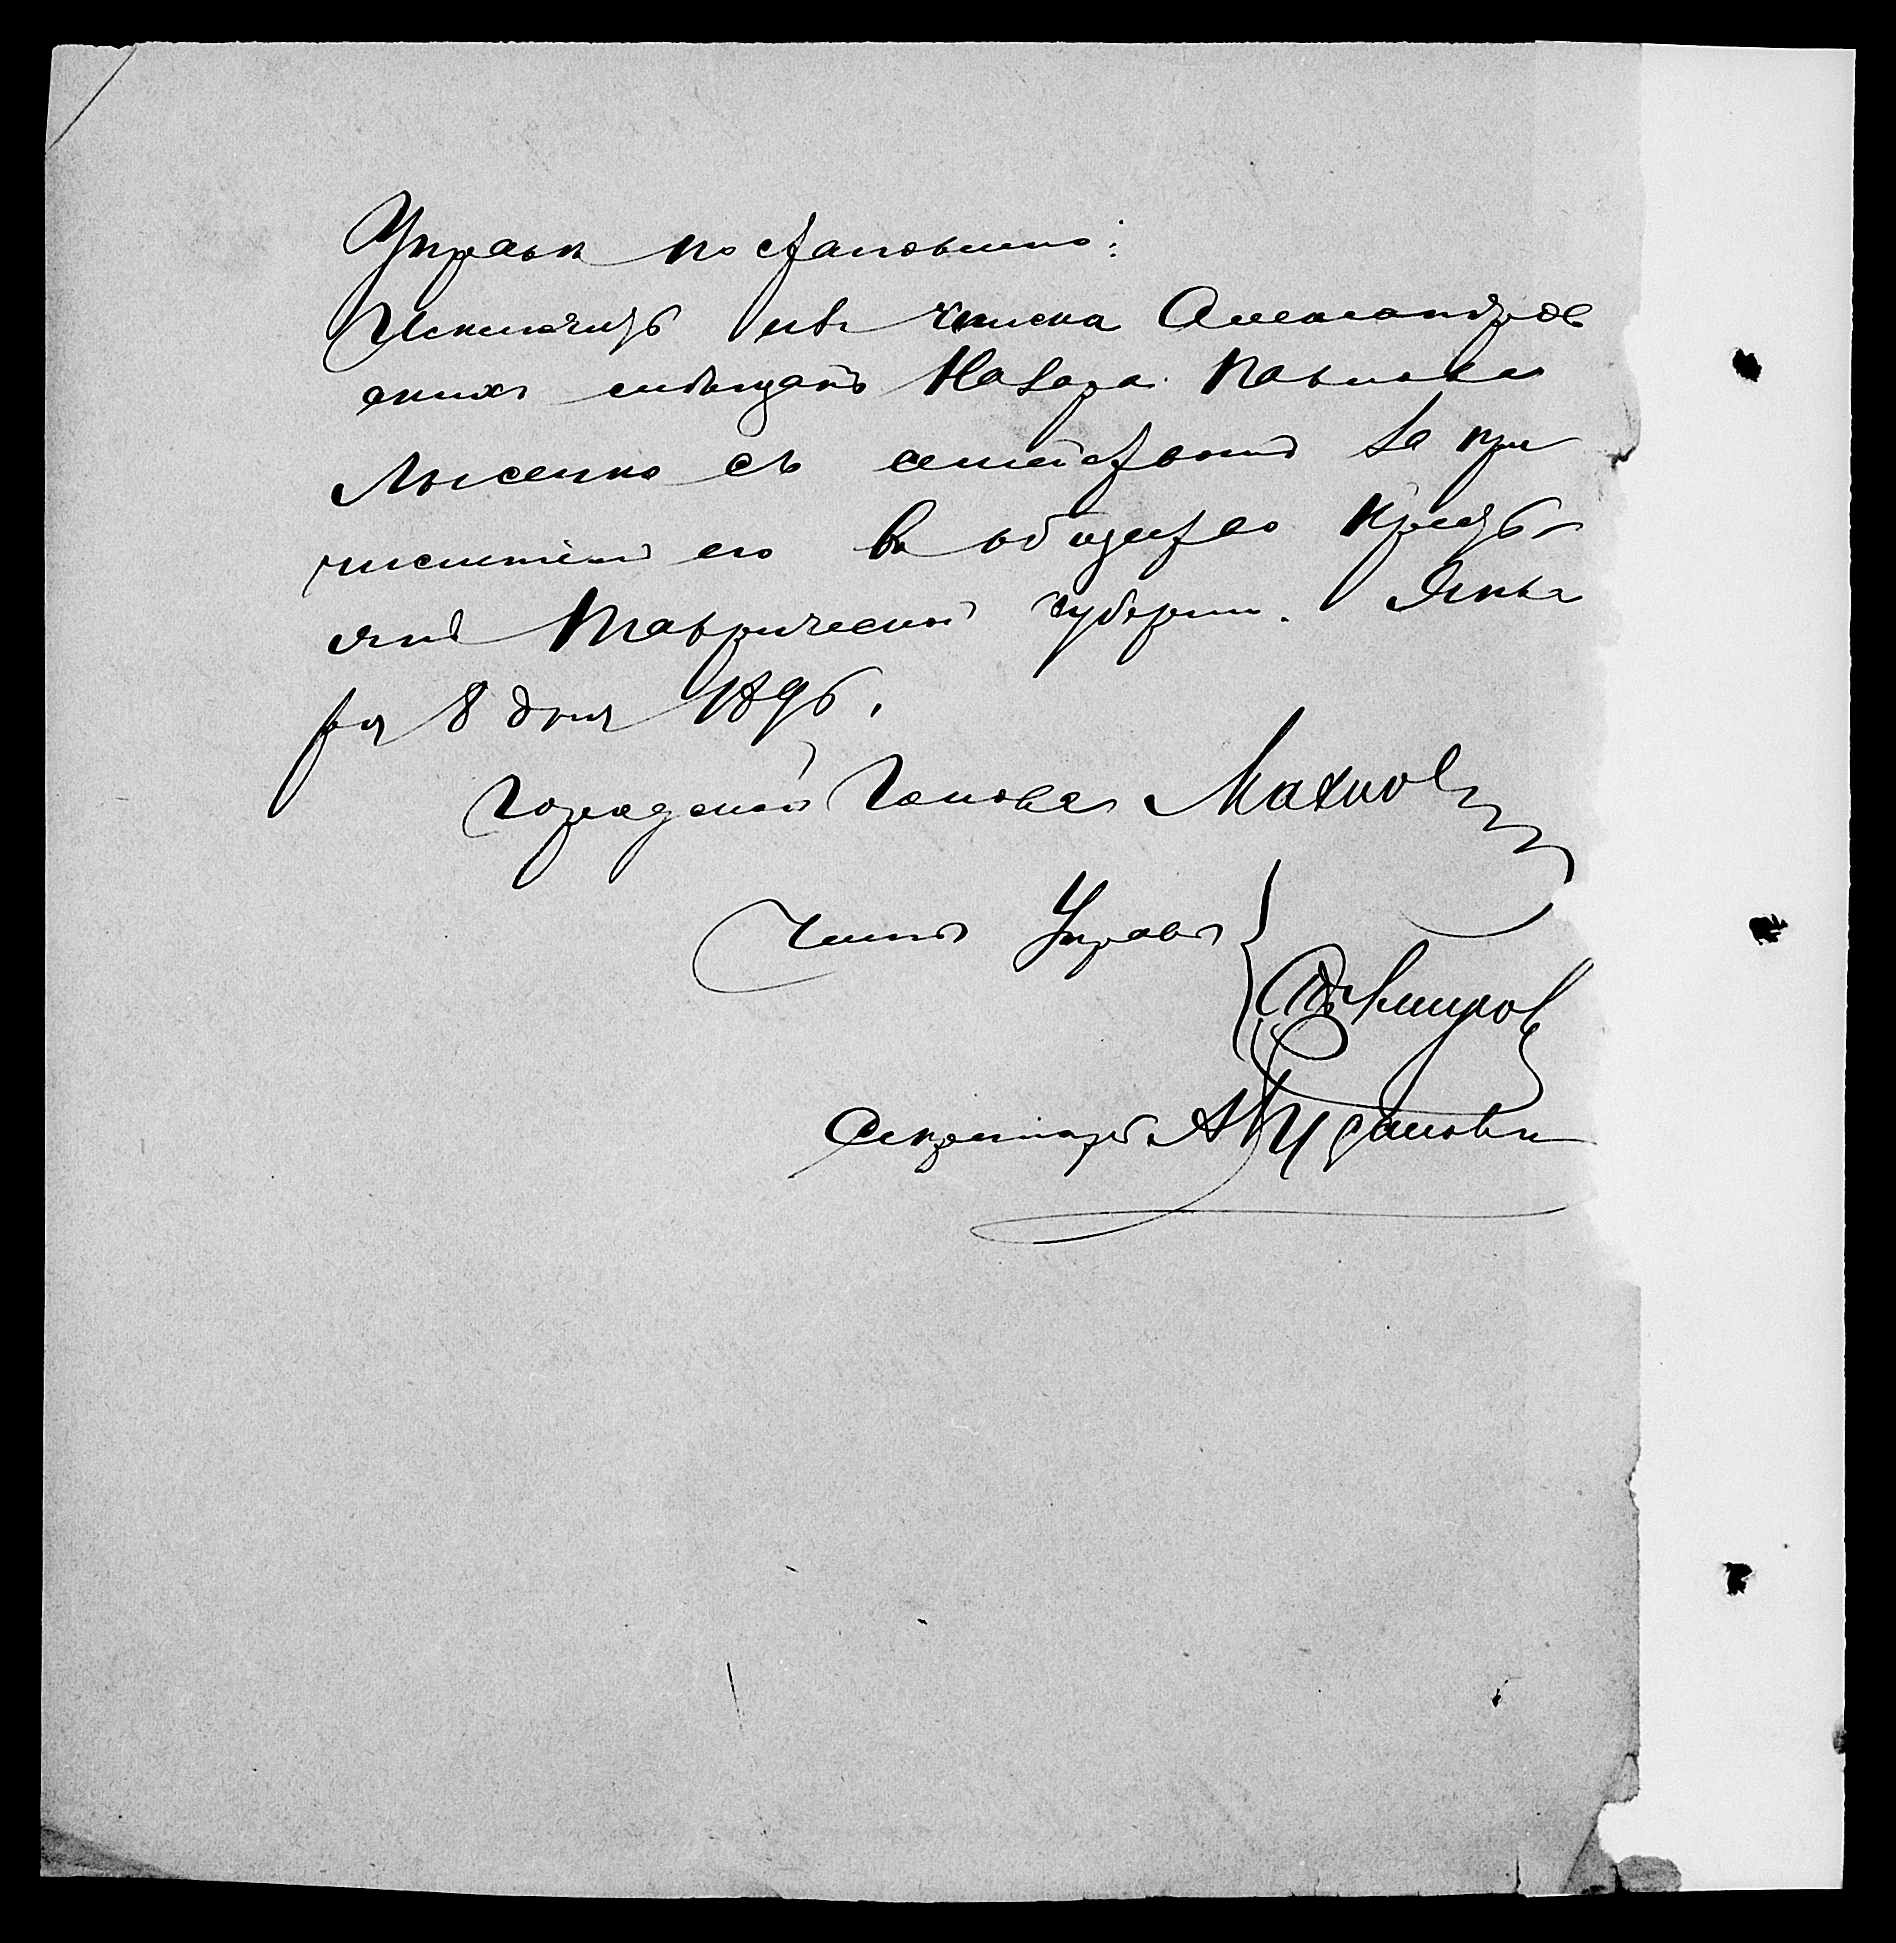 Управа постановила:
Исключить изъ числа Александров
скихъ мѣщанъ Назара Павлова
Лысенко съ семействомъ за при
численіемъ его въ общество кресть
янъ Таврической губерніи. Янва
ря 8 дня 1896.
Городской Голова Махнов
Члены Управы
Секретарь А